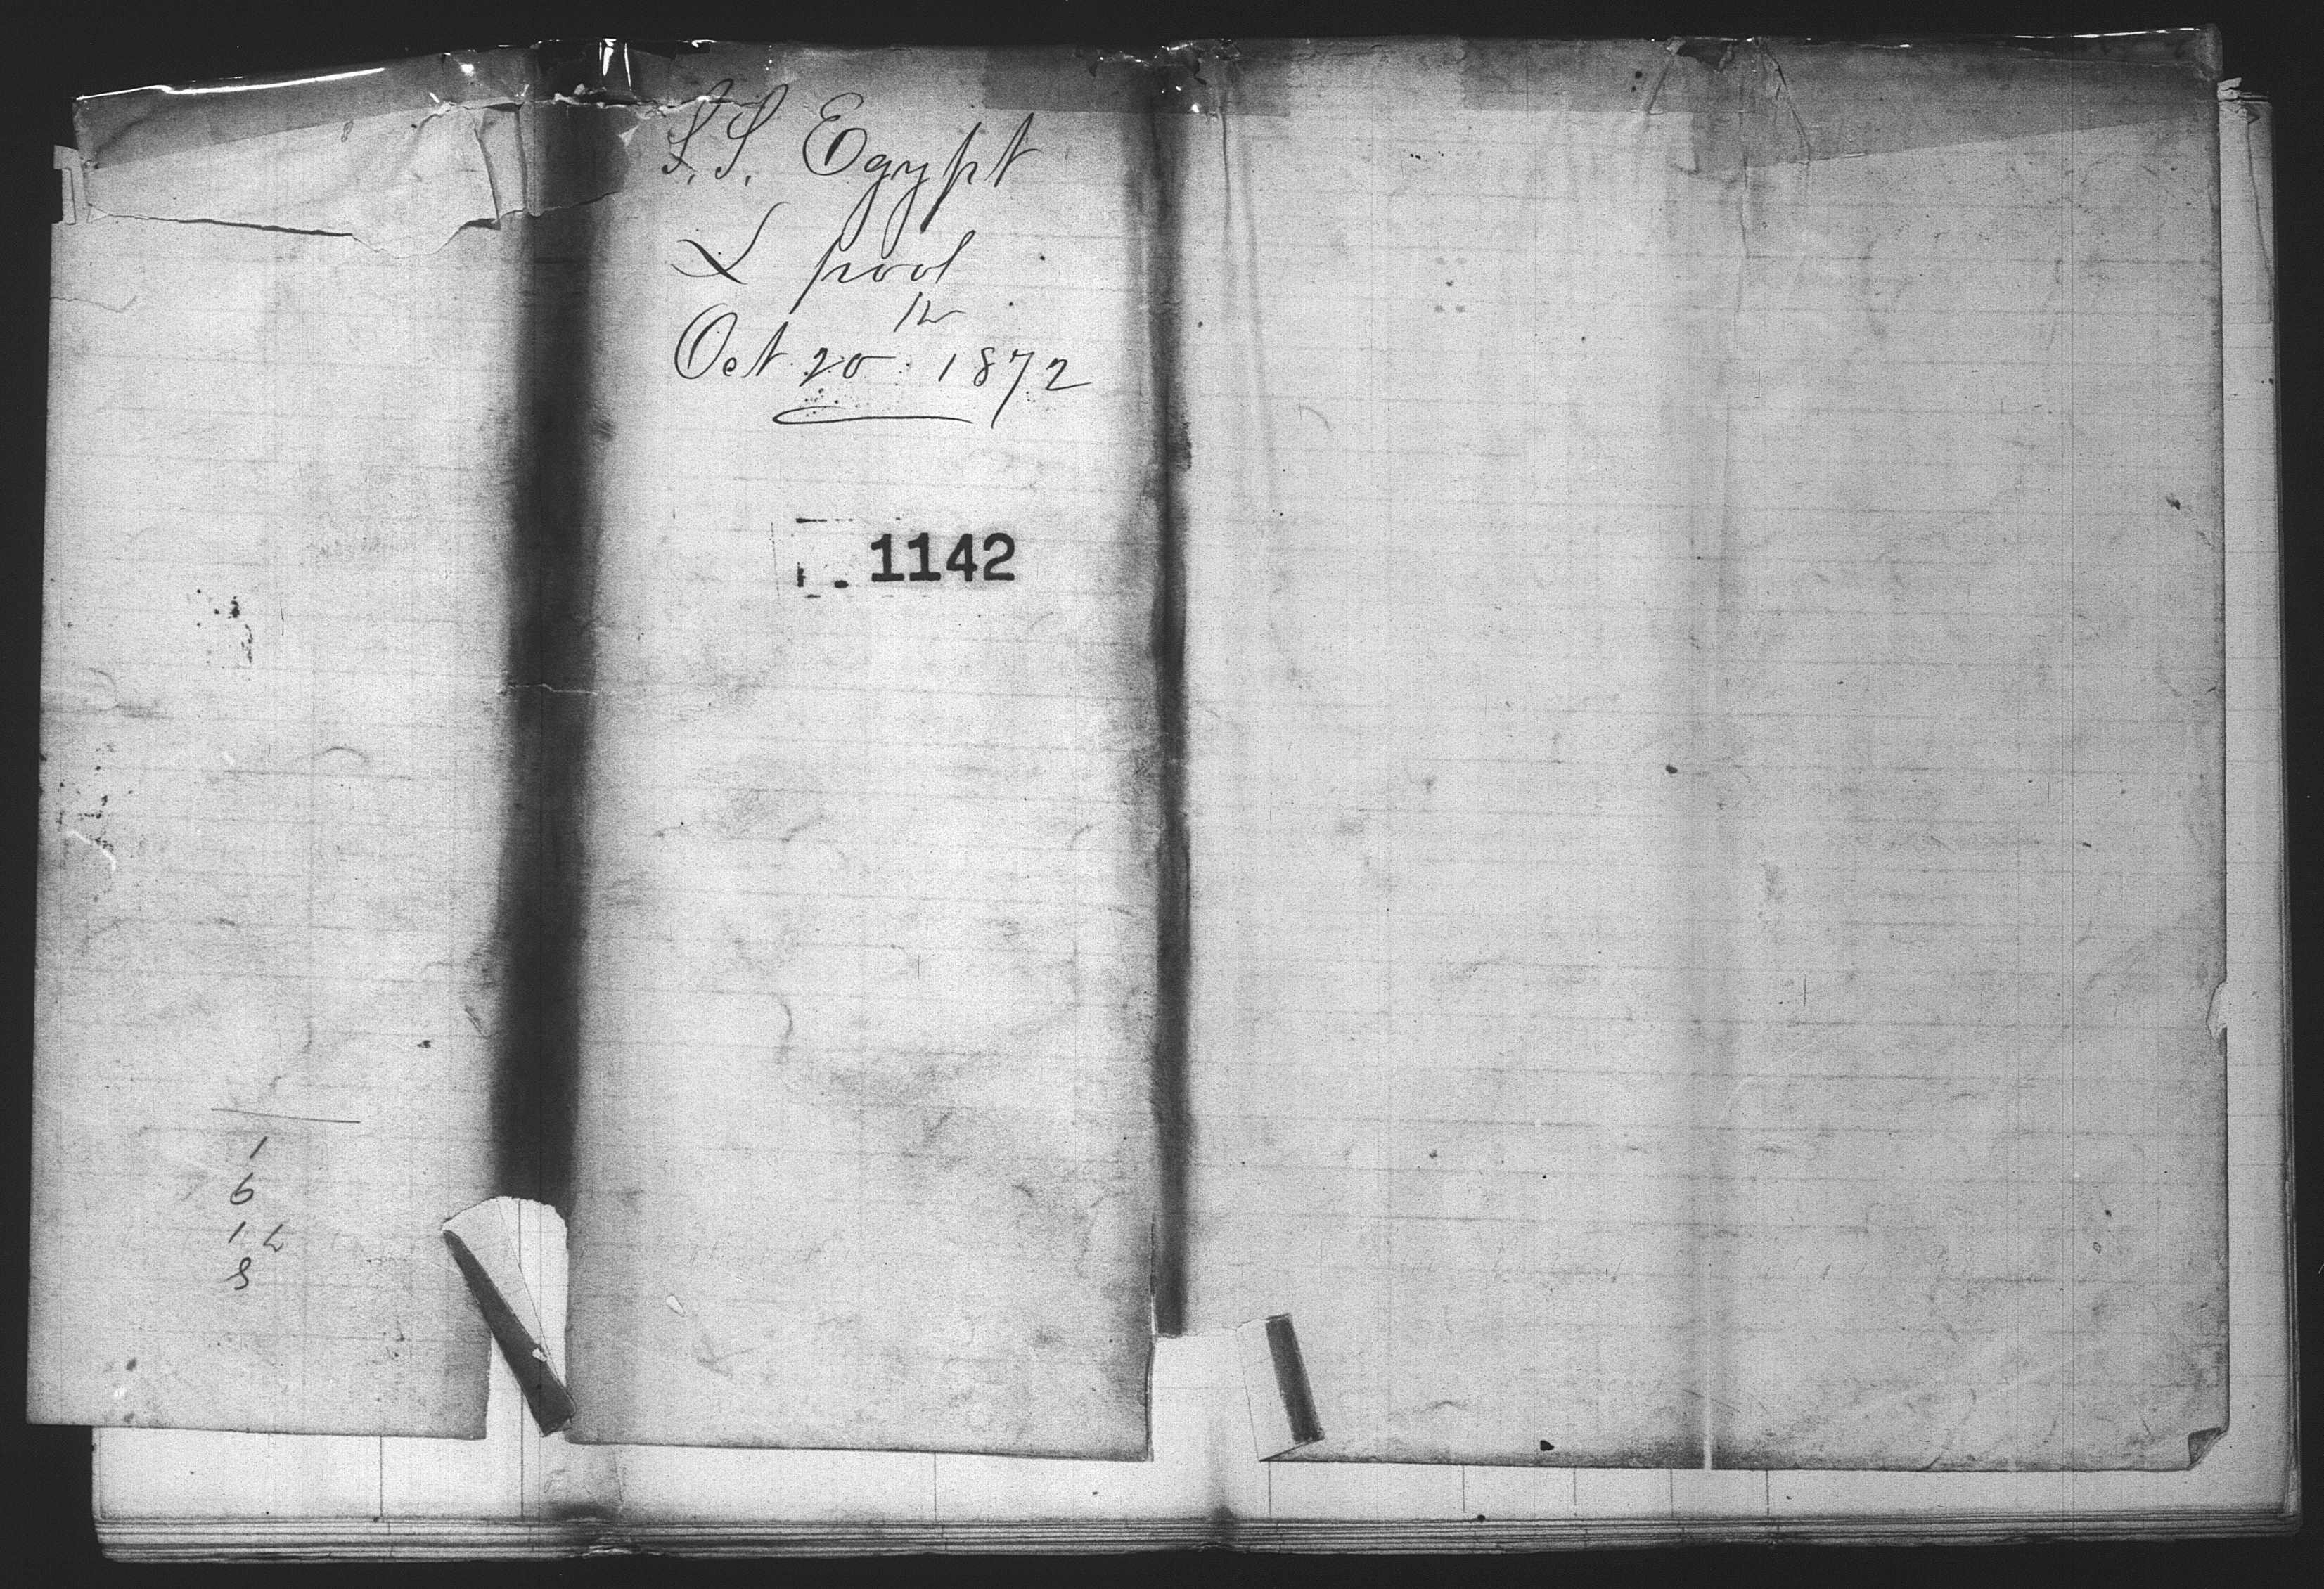 S.S. Egypt
L pool
12
Oct 20 1872
1142
1
6
12
8